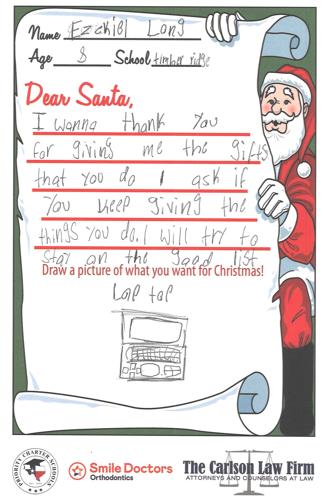 Name Ezekiel Long
Age 8 School timber ridge
Dear Santa,
I wanna thank you
for giving me the gifts
that you do I ask if
you keep giving the
things you do. I will try to
stay on the good list
Draw a picture of what you want for Christmas!
Lap top
PRIORITY CHARTER SCHOOLS
Smile Doctors
Orthodontics
The Carlson Law Firm
ATTORNEYS AND COUNSELORS AT LAW